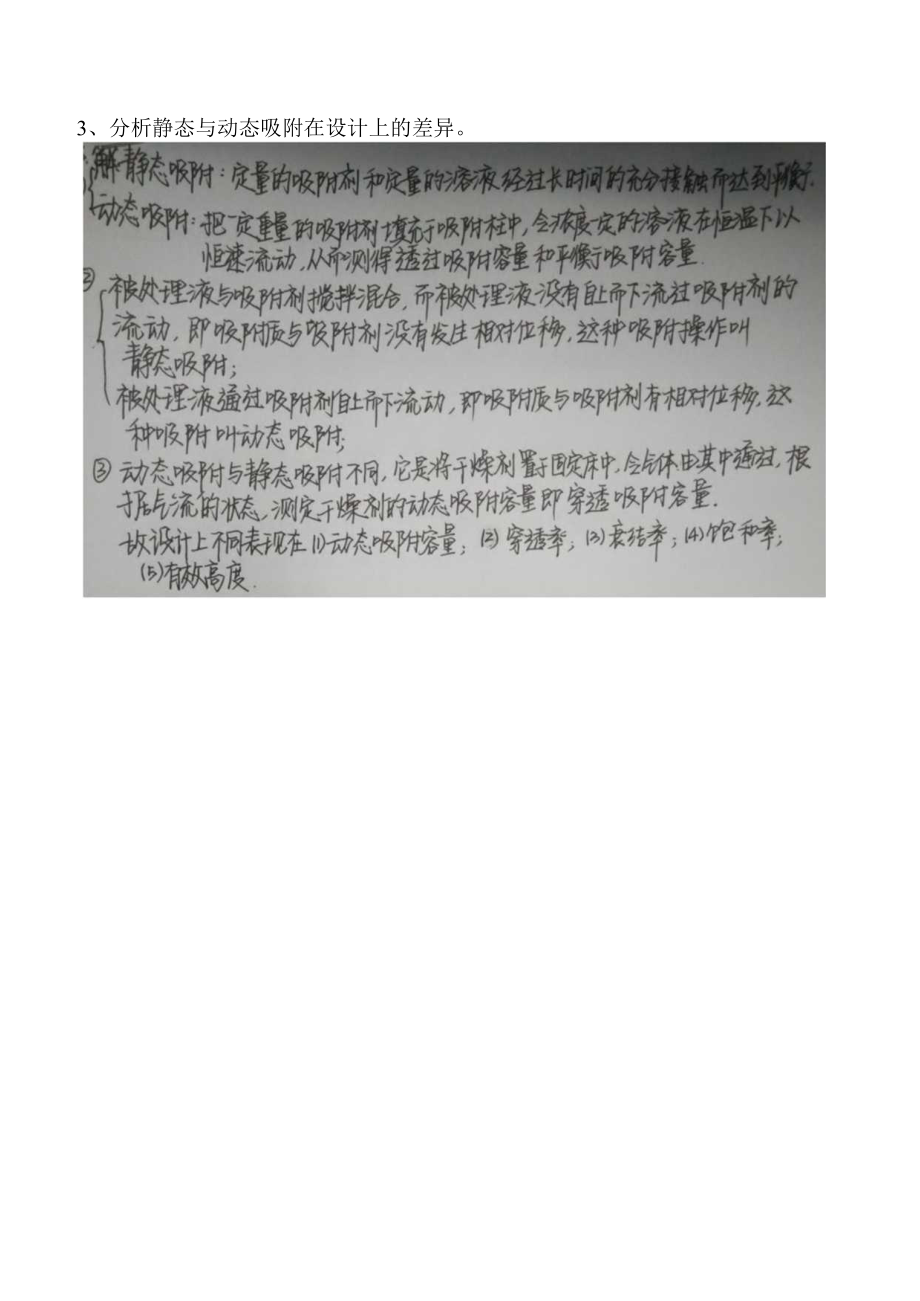 3、分析静态与动态吸附在设计上的差异。
解:静态吸附:定量的吸附剂和定量的溶液经过长时间的充分接触而达到平衡.
动态吸附:把一定重量的吸附剂填充于吸附柱中,令浓度一定的溶液在恒温下以
恒速流动,从而测得透过吸附容量和平衡吸附容量.
② 被处理液与吸附剂搅拌混合,而被处理液没有自上而下流过吸附剂的
流动,即吸附质与吸附剂没有发生相对位移,这种吸附操作叫
静态吸附;
被处理液通过吸附剂自上而下流动,即吸附质与吸附剂有相对位移,这
种吸附叫动态吸附;
③ 动态吸附与静态吸附不同,它是将干燥剂置于固定床中,令气体由其中通过,根
据气流的状态,测定干燥剂的动态吸附容量即穿透吸附容量.
故设计上不同表现在(1)动态吸附容量;(2)穿透率;(3)衰结率;(4)饱和率;
(5)有效高度.